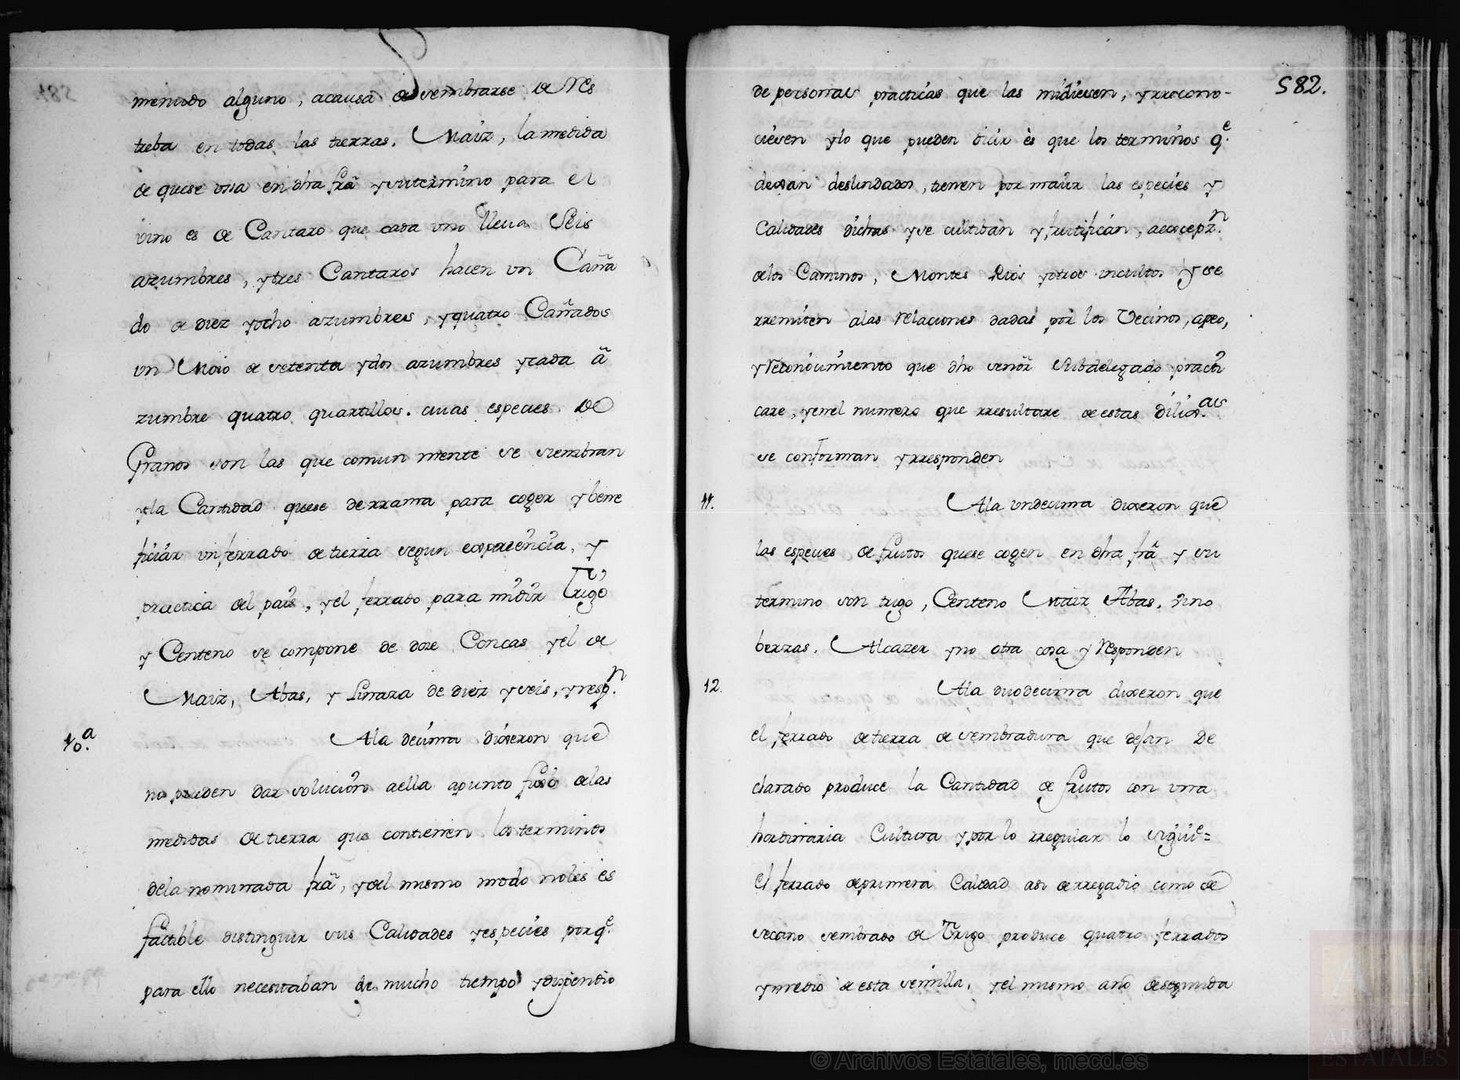 menudo alguno, acausa de sembrarse de Res
treba en todas las tierras. Maiz, la medida
de quese usa en dha frâ ysutermino para el
vino es de Cantaro que cada uno lleua Seis
azumbres, ytres Cantaros hacen un Caña
do de diez yocho azumbres, yquatro Cañados
un Moio de setenta ydos azumbres ycada a
zumbre quatro quartillos. cuias especies de
Granos son las que comun mente se siembran
yla Cantidad quese derrama para coger ybene
ficiar unferrado de tierra segun expreencia, y
practica del pais, yel ferrado para midir Trigo
y Centeno se compone de doze Concas yel de
Maiz, Abas, y Linaza de diez yseis, yrespn.
10.a Ala decima dixeron que
no pueden dar solucion aella apunto fixo delas
medidas de tierra que contienen los terminos
dela nominada frâ, ydel mismo modo noles es
factible distinguir sus Calidades yespecies porqe.
para ello necesitaban de mucho tiempo ydispendio
582.
de personas practicas que las midiesen, yrreconο-
ciesen ylo que pueden dicir es que los terminos qe.
dexan deslindados, tienen por maior las especies y
Calidades dichas yse cultiban yfrutifican, aexcepzn.
delos Caminos, Montes Rios yotros incultos y se
rremiten alas relaciones dadas por los Vecinos, apeo,
yReconocimiento que dho señor Subdelegado practi
care, yenel numero que rresultare de estas dilixas.
se conforman yrresponden
11. Ala undecima dixeron que
las especies de frutos quese cogen en dha frâ y su
termino son trigo, Centeno Maiz Abas, vino
berzas, Alcazer yno otra cosa y Responden
12. Ala duodecima dixeron que
el ferrado de tierra de sembradura que dejan De
clarado produce la Cantidad de frutos con una
hordinaria Cultura ypor lo rreguiar lo siguie=
el ferrado deprimera Calidad asi derregadio como de
secano sembrado de Trigo produce quatro ferrados
ymedio de esta semilla, yel mismo año deseguida
© Archivos Estatales, mecd.es
ESTATALES